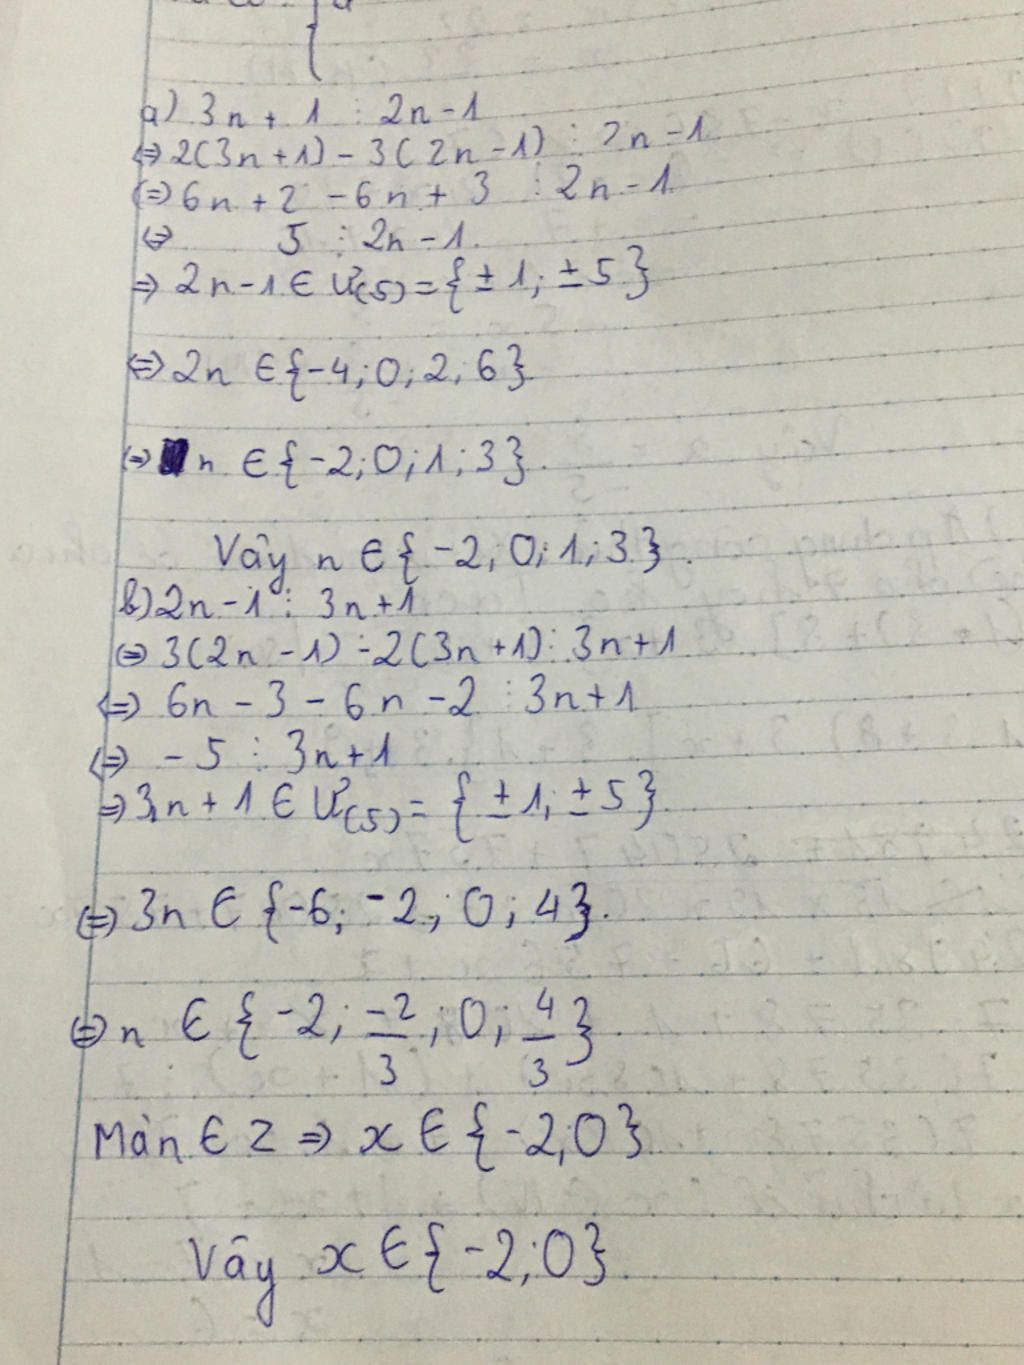 a) 3n + 1 ⋮ 2n - 1
⇔ 2(3n+1) - 3(2n-1) ⋮ 2n - 1
⇔ 6n + 2 - 6n + 3 ⋮ 2n - 1
⇔ 5 ⋮ 2n - 1.
⇒ 2n - 1 ∈ Ư(5) = {± 1; ± 5}
⇔ 2n ∈ {-4; 0; 2; 6}.
⇔ n ∈ {-2; 0; 1; 3}.
Vậy n ∈ {-2; 0; 1; 3}.
b) 2n - 1 ⋮ 3n + 1
⇔ 3(2n - 1) - 2(3n + 1) ⋮ 3n + 1
⇔ 6n - 3 - 6n - 2 ⋮ 3n + 1
⇔ - 5 ⋮ 3n + 1
⇒ 3n + 1 ∈ Ư(5) = {± 1; ± 5}.
⇔ 3n ∈ {-6; -2; 0; 4}.
⇔ n ∈ {-2; -2/3; 0; 4/3}.
Mà n ∈ Z ⇒ x ∈ {-2; 0}
Vậy x ∈ {-2; 0}.